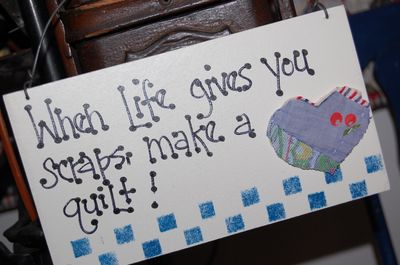 When life gives you
scraps, make a
quilt!